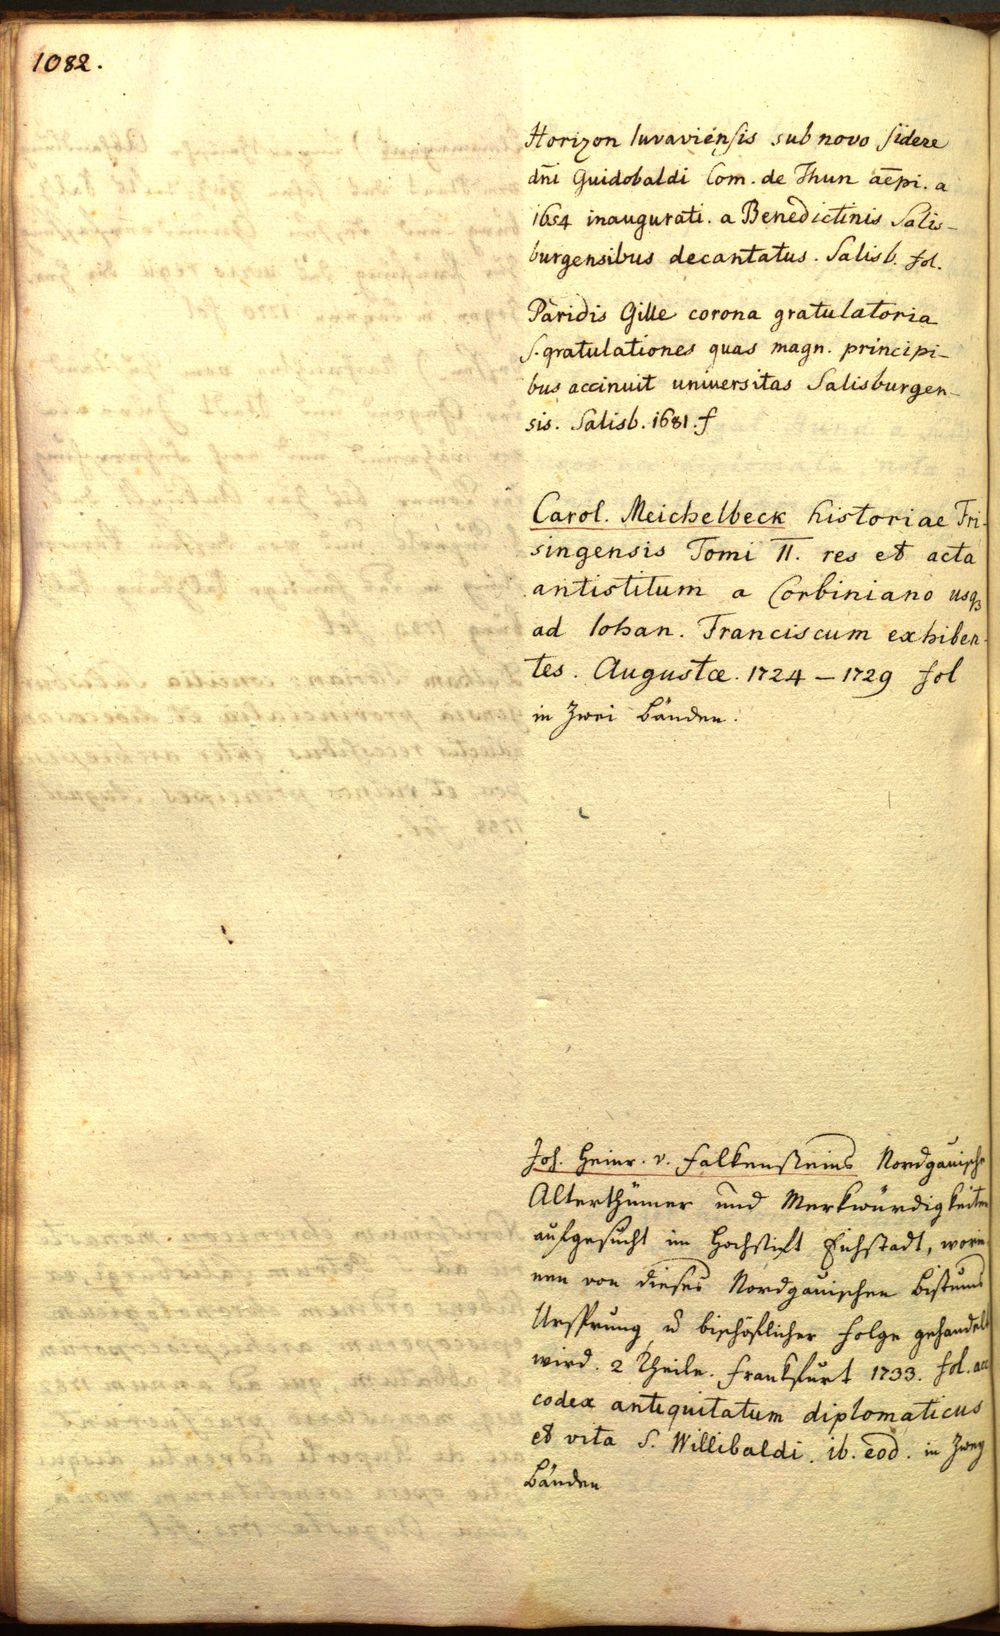 1082.
Horizon Iuvaviensis sub novo sidere
dn̄i Guidobaldi Com. de Thun aēpi. a
1654 inaugurati. a Benedictinis Salis-
burgensibus decantatus. Salisb. fol.
Paridis Gille corona gratulatoria
S. gratulationes quas magn. principi-
bus accinuit universitas Salisburgen-
sis. Salisb. 1681. f
Carol. Meichelbeck historiae Fri-
singensis Tomi II. res et acta
antistitum a Corbiniano usq3
ad Iohan. Franciscum exhiben-
tes. Augustæ. 1724 – 1729 fol
in Zwei Bänden.
Joh. Heinr. v. Falkensteins Nordgauische
Alterthümer und Merkwürdigkeiten
aufgesucht im Hochstift Eichstadt, worin-
nen von dieses Nordgauischen Bistums
Ursprung u bischöflicher Folge gehandelt
wird. 2 Theile. Frankfurt 1733. fol. acc
codex antiquitatum diplomaticus
et vita S. Willibaldi. ib. eod. in Zwey
Bänden